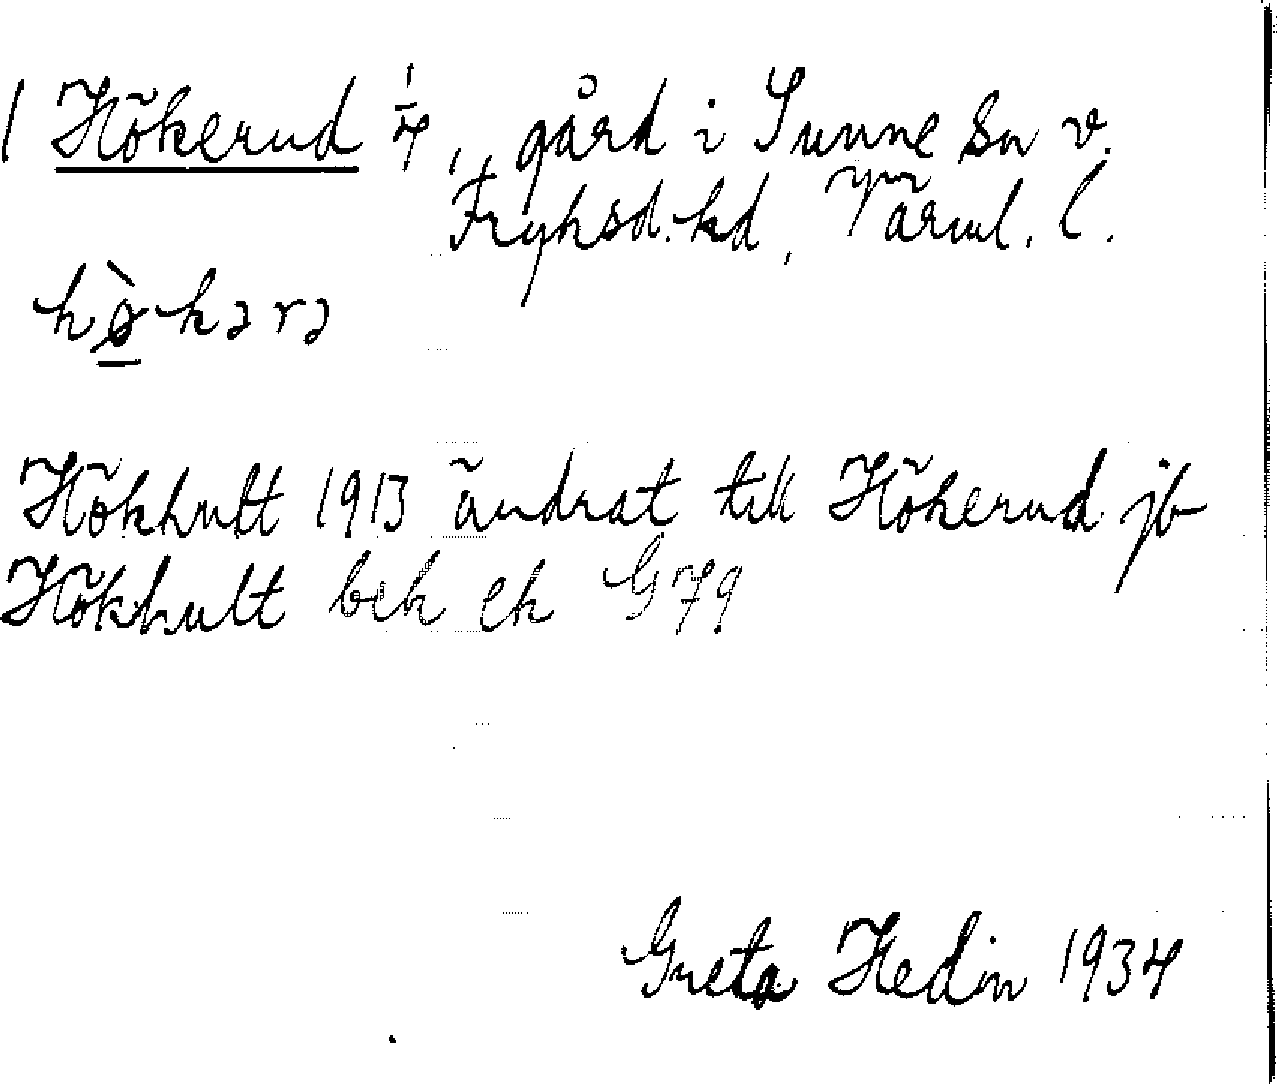 1 Hökerud 1/4, gård i Sunne sn v.
Fryksd. hd, Värml. l.
hø̀kərə
Hökhult 1913 ändrat till Hökerud jb
Hökhult bek ek G79
Greta Hedin 1934